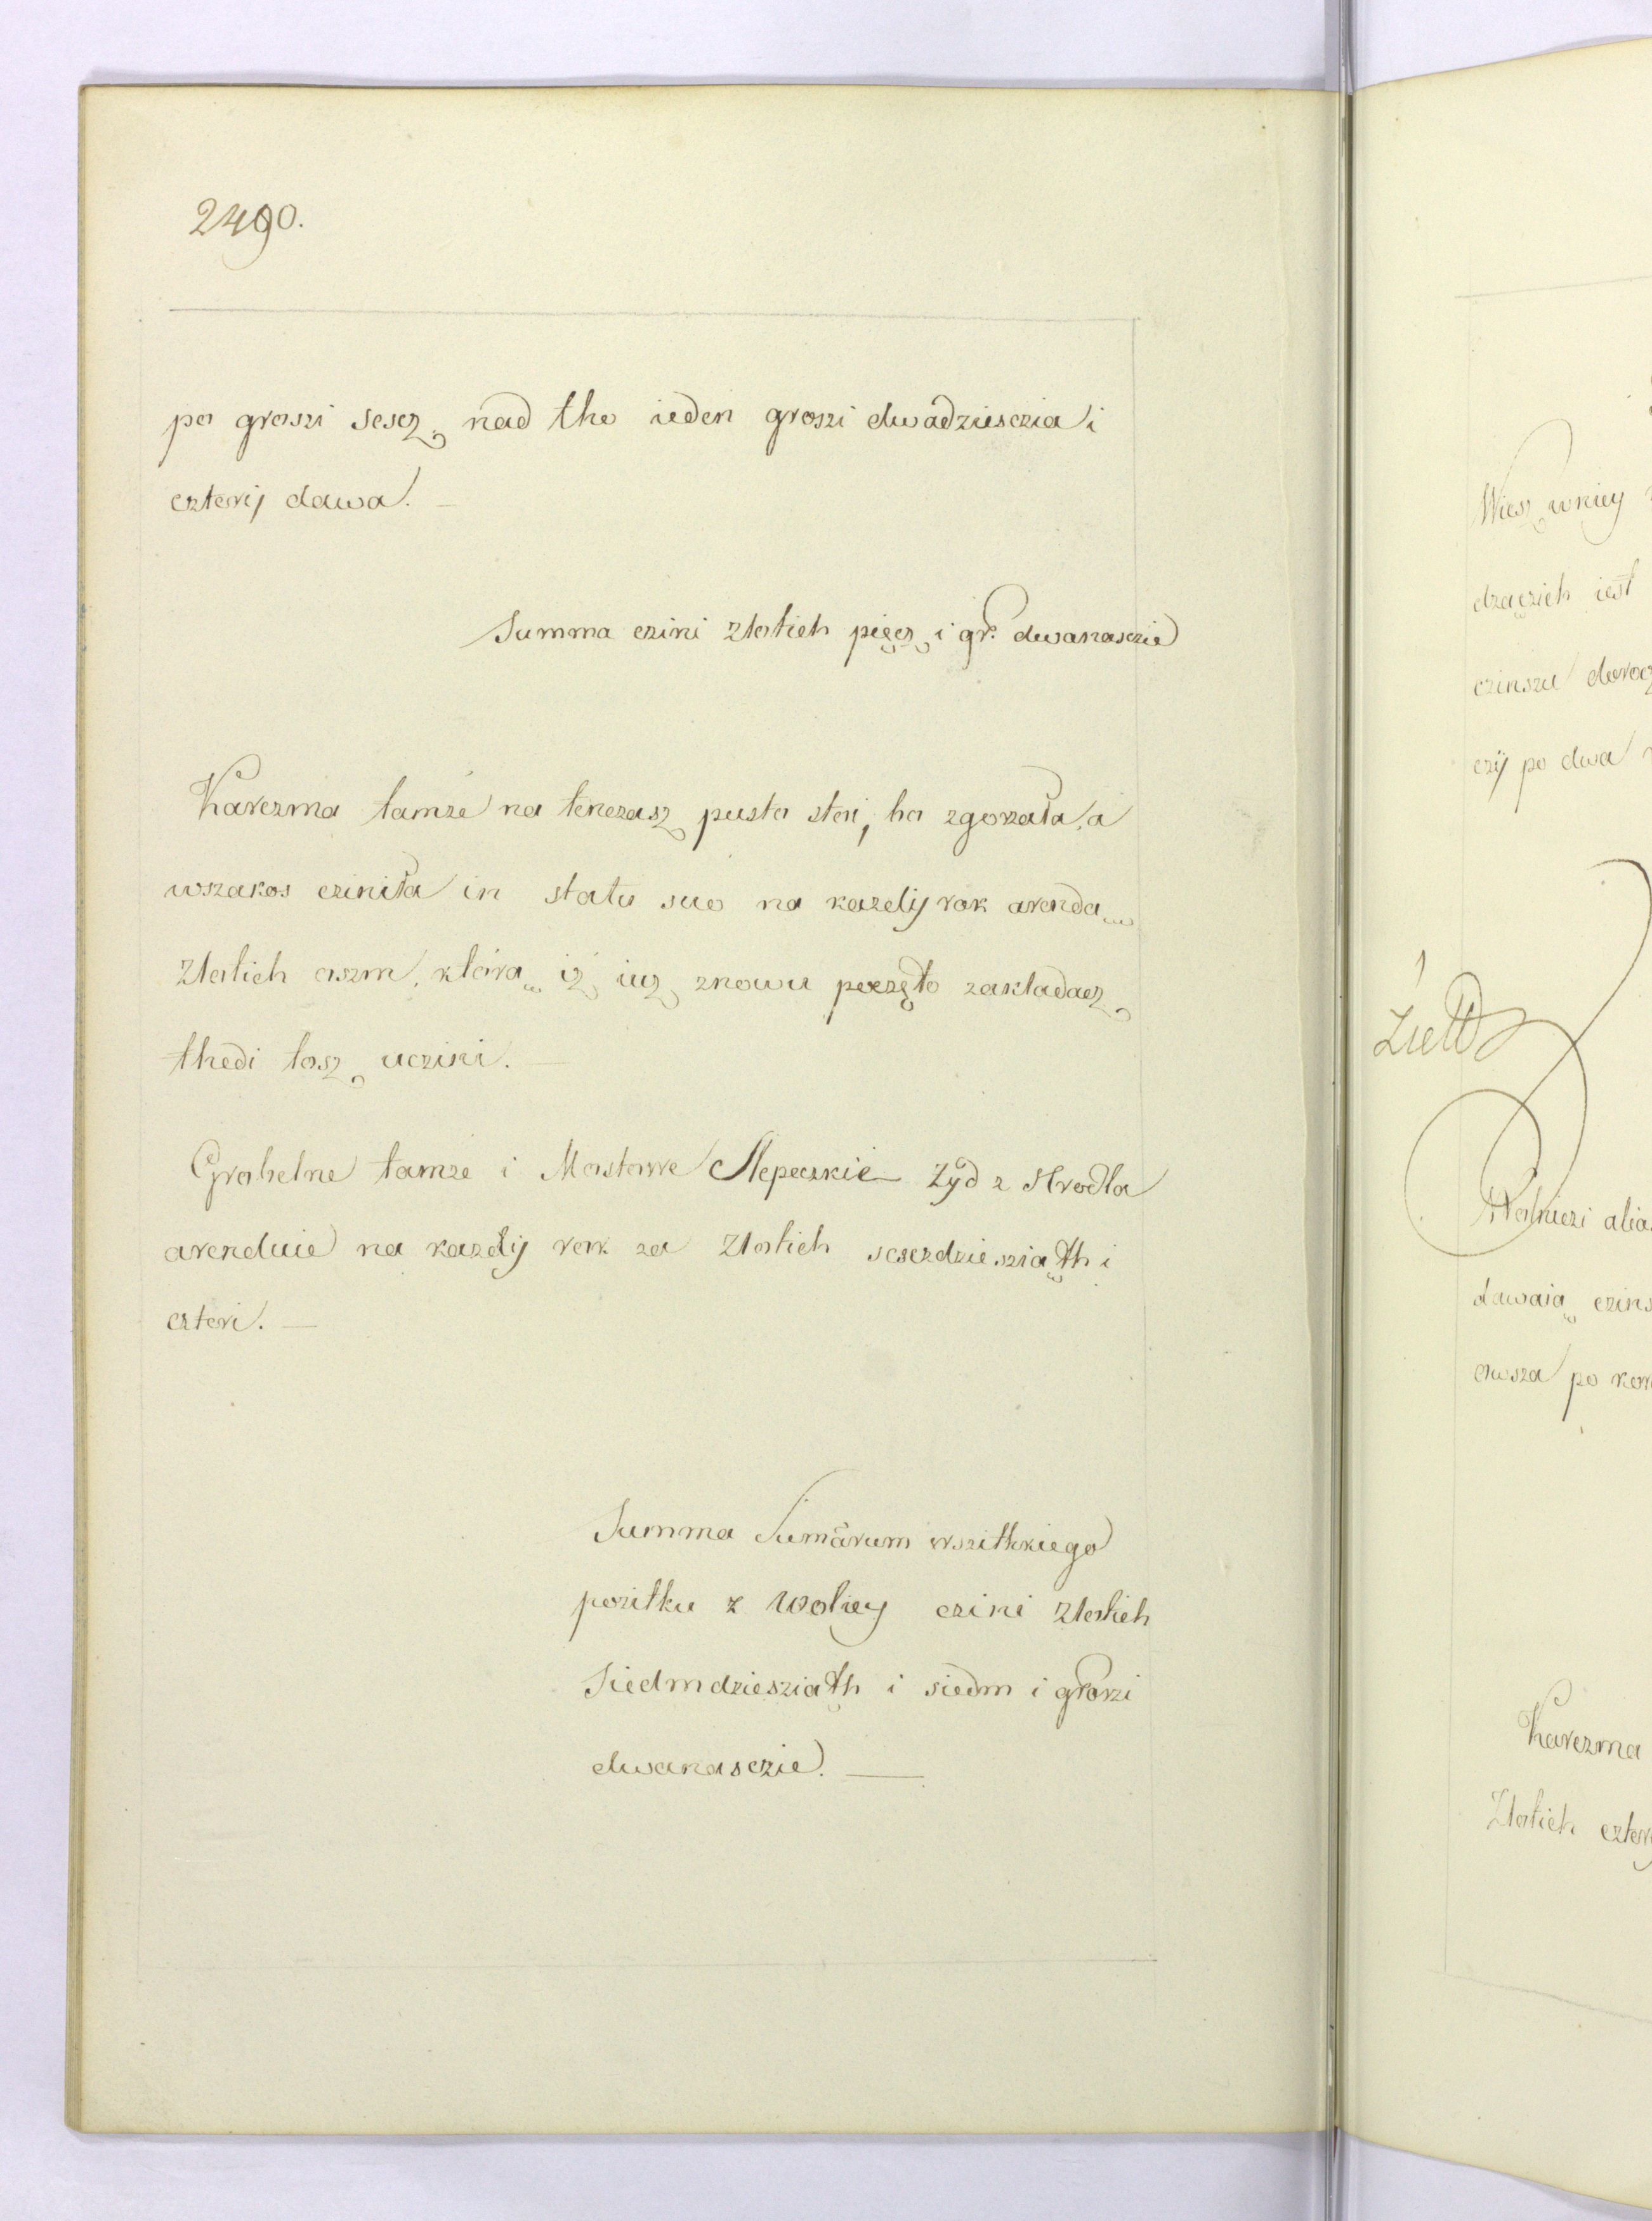 2490.
po groszi sescz, nad tho ieden groszi dwadziesczia i
czterij dawa. —
Summa czini złotich pięcz i gr. dwanasczie
Karczma tamze na tenczasz pusto stoi, bo zgorzała, a
wszakos cziniła in statu suo na kazdij rok arendą
złotich oszm, którą iż iuz znowu poczęto zakładacz
thedi tosz uczini. —
Grobelne tamze i Mostowe Slepeczkie Zyd z Hrodła
arenduie na kazdij rok za złotich sesczdziesziąth i
czteri. —
Summa Sumarum wszitkiego
pozitku z Woliey czini złotich
Siedmdziesziąth i siedm i groszi
dwanasczie. —
Wiesz wniey
dzączich iest
czinszu dorocz
czij po dwa
dawaią czins
owsza po
Karczma
Złotich czter